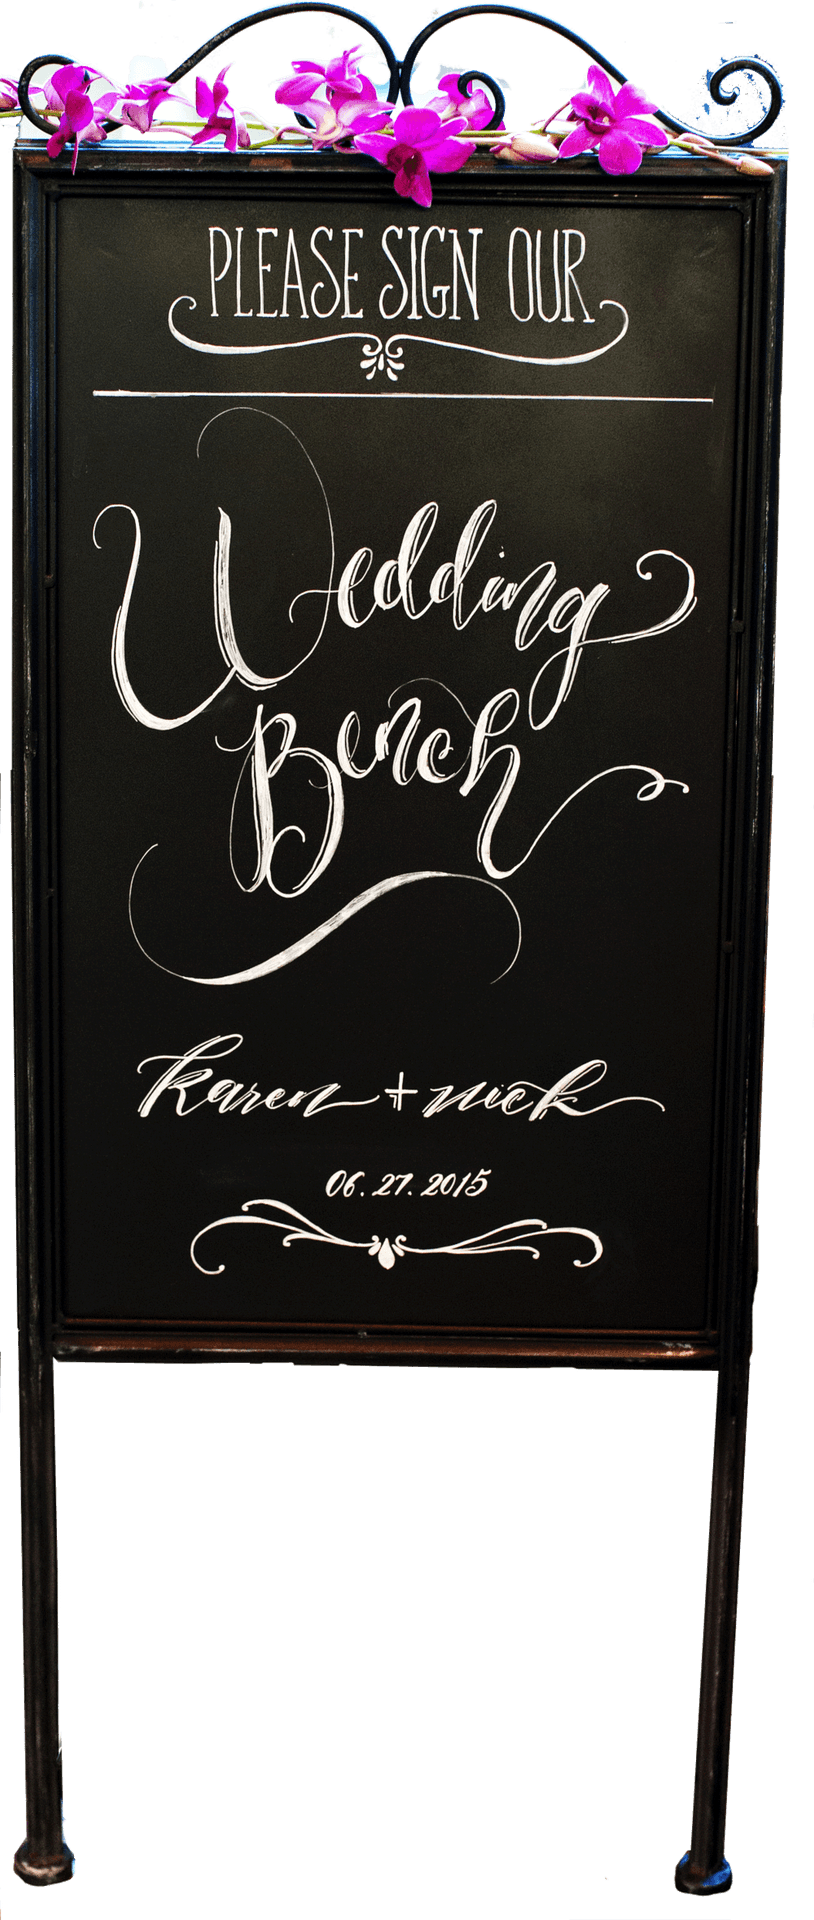 PLEASE SIGN OUR
Wedding
Bench
karen + nick
06.27.2015